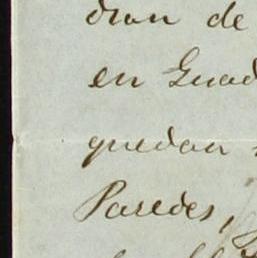 dran de
en Guad
quedan
Paredes,